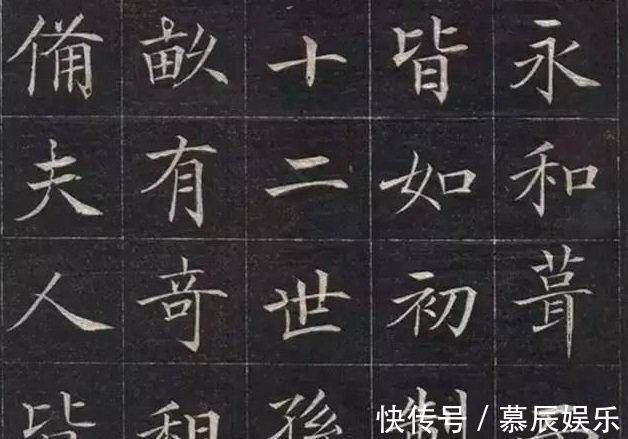 永和葺
皆如初制
十二世孫
畝有奇租
備夫人皆
快传号 / 慕辰娱乐